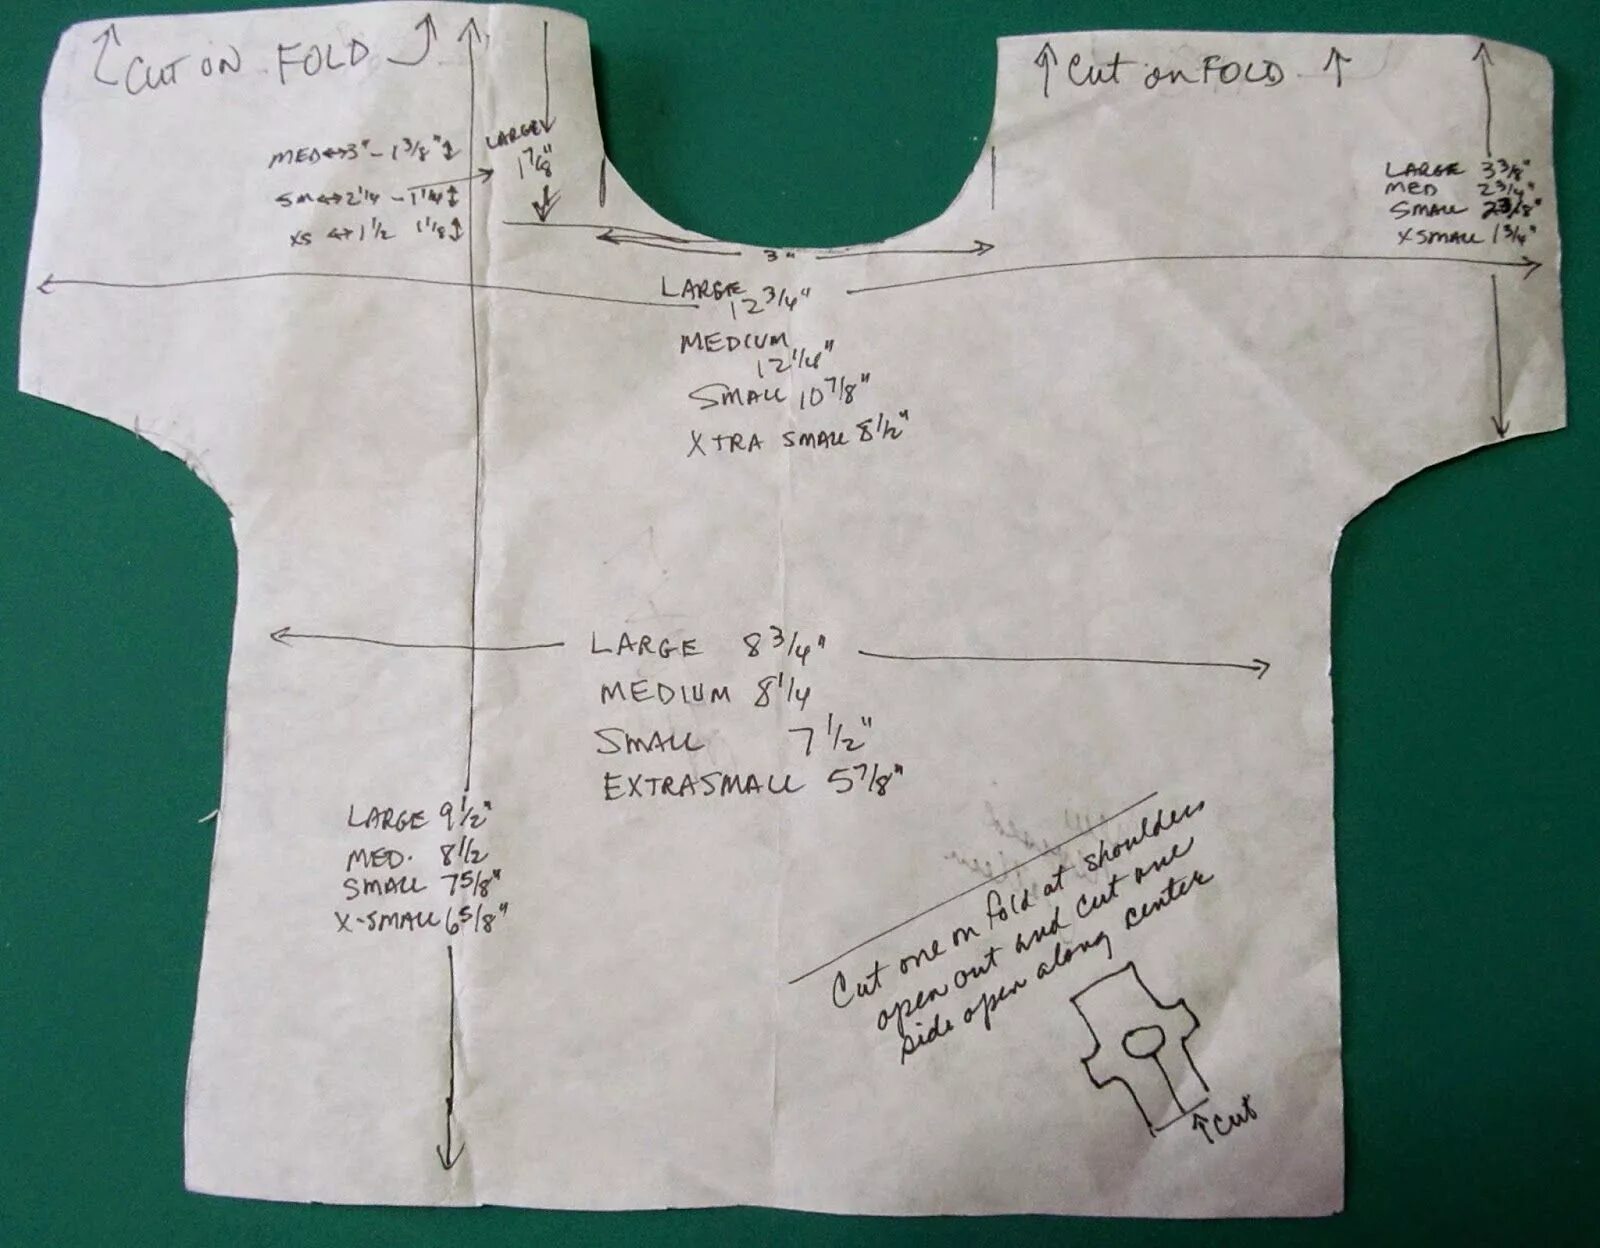 Cut on FOLD
Cut on FOLD
LARGE
1 7/8"
MED ↔ 3" - 1 3/8" ↕
SM ↔ 2 1/4 - 1 1/4 ↕
XS ↔ 1 1/2 1 1/8 ↕
LARGE 3 3/8"
MED 2 3/4"
SMALL 2 3/8"
XSMALL 1 3/4"
3"
LARGE
12 3/4"
MEDIUM
12 1/4"
SMALL 10 7/8"
XTRA SMALL 8 1/2"
LARGE 8 3/4"
MEDIUM 8 1/4
SMALL 7 1/2"
EXTRASMALL 5 7/8"
LARGE 9 1/2"
MED. 8 1/2
SMALL 7 5/8"
X-SMALL 6 5/8"
Cut one on fold at shoulders
open out and cut one
side open along center
↑ cut